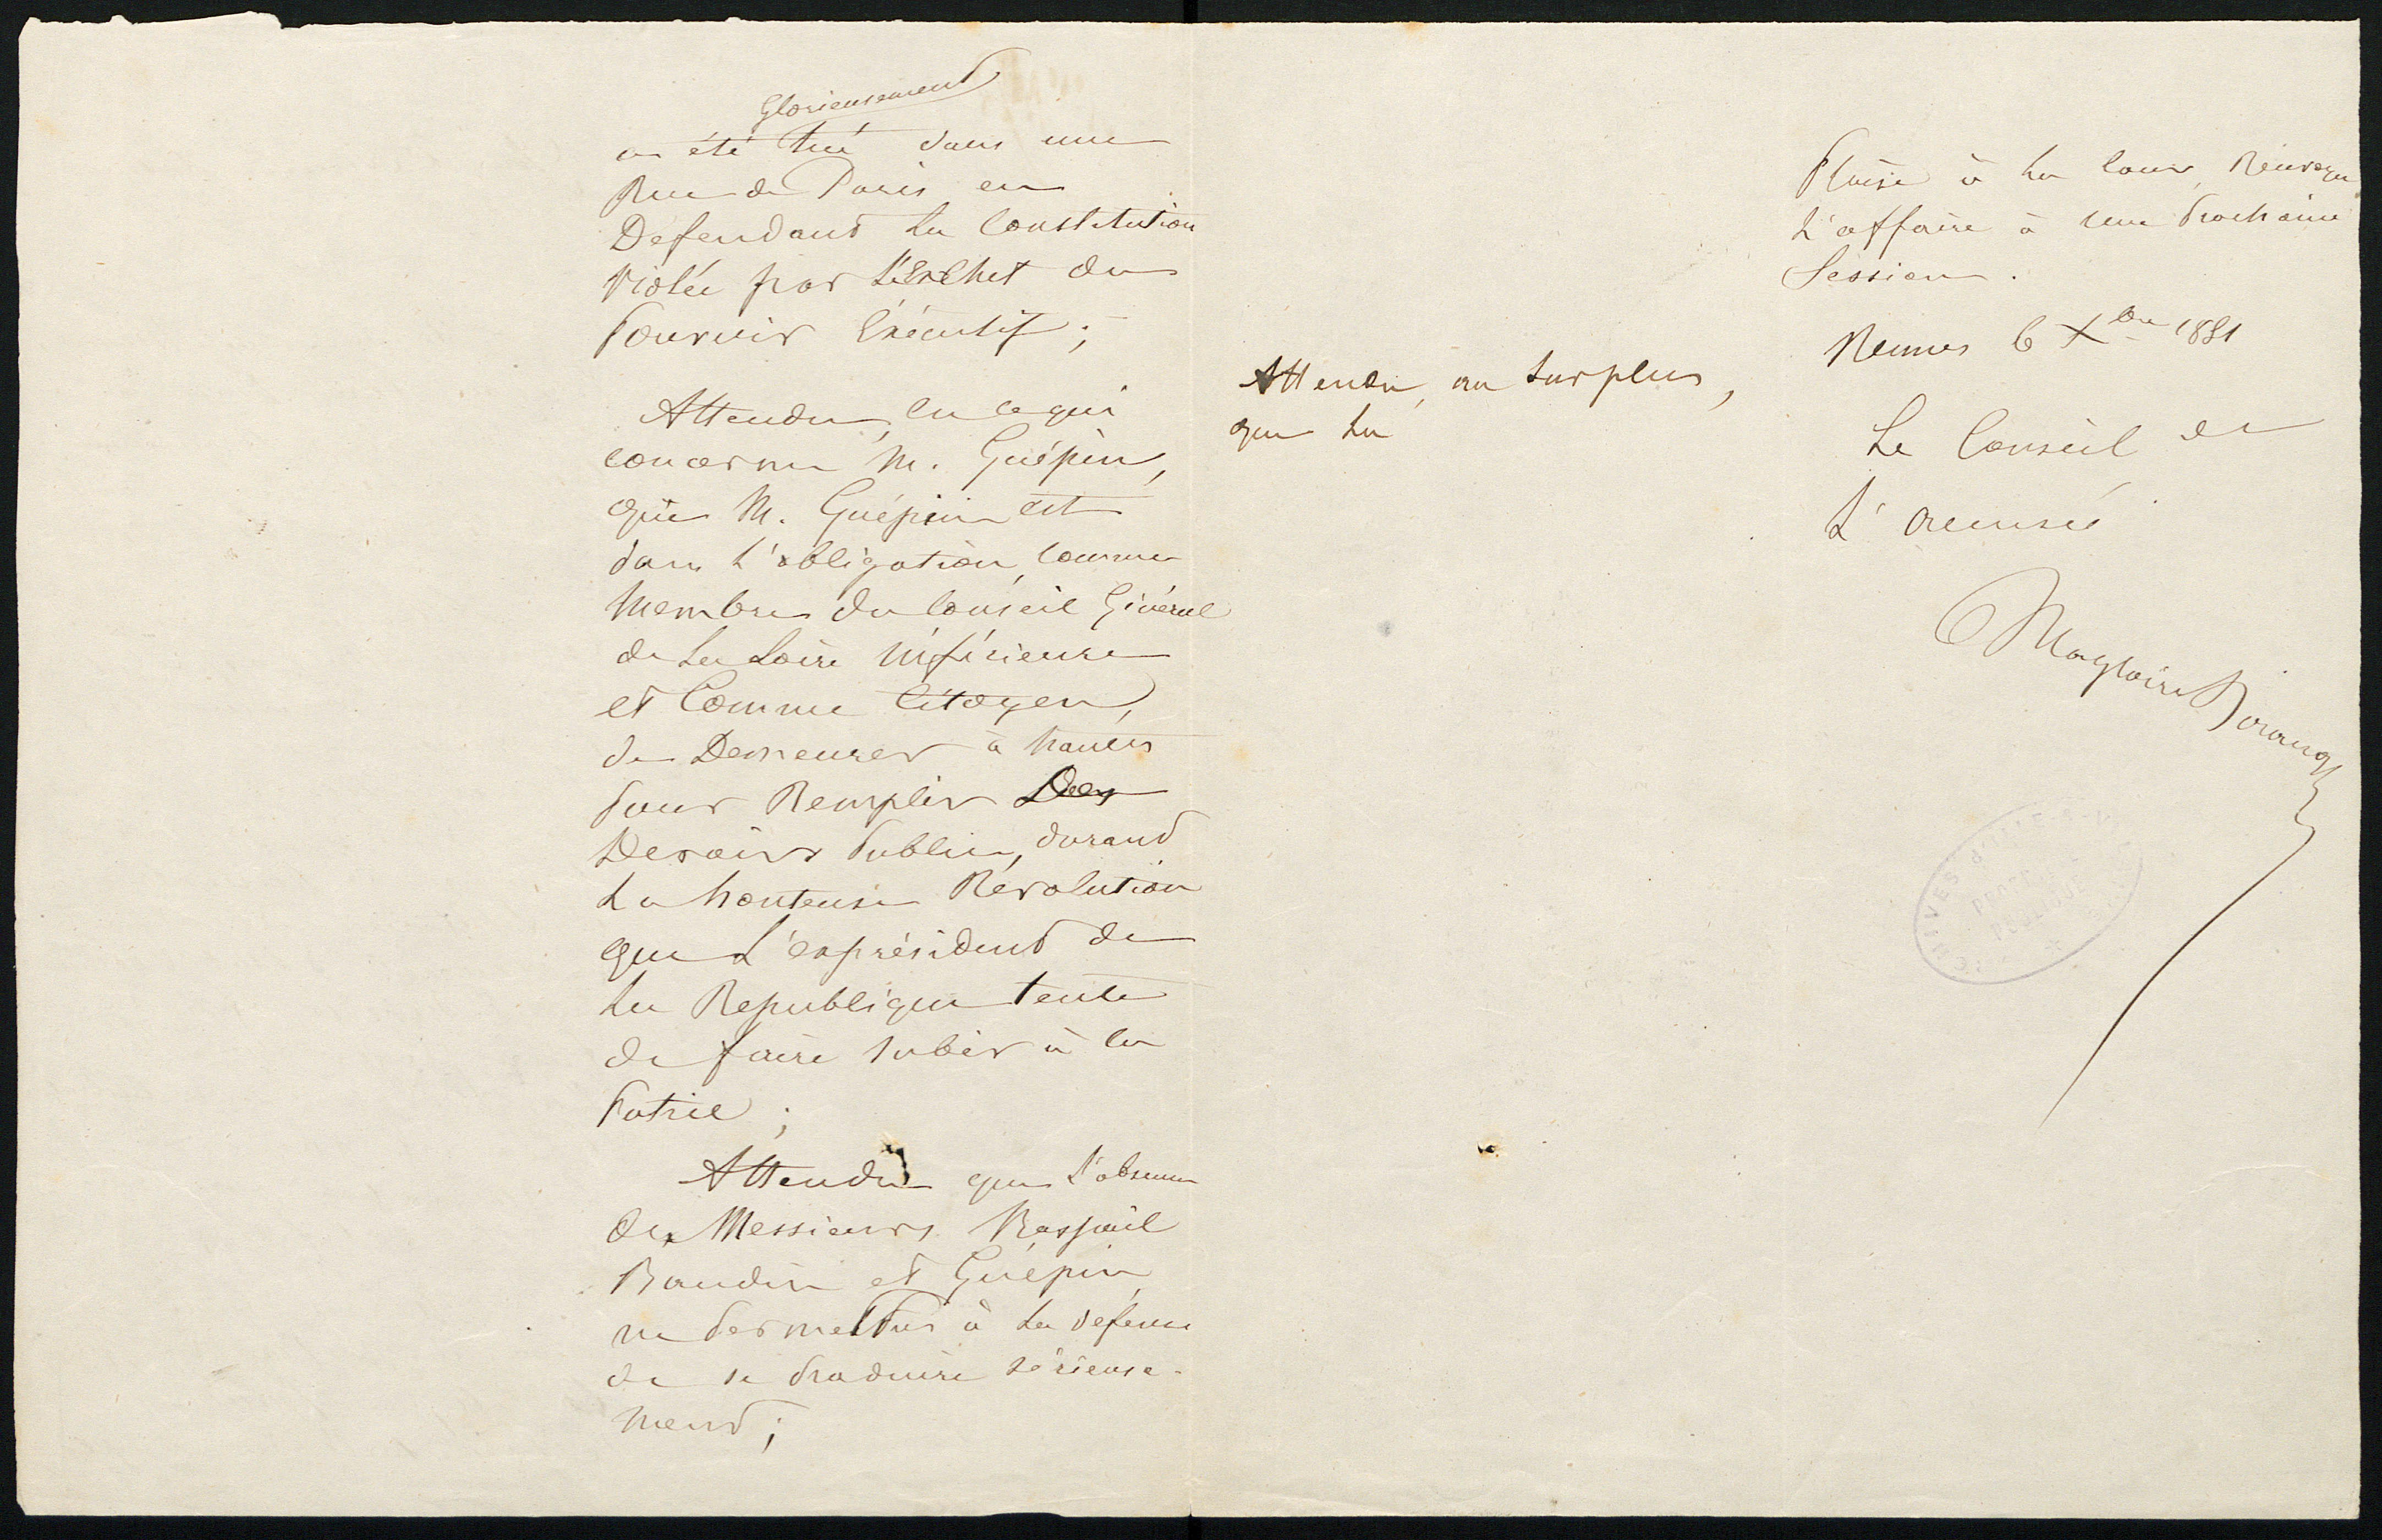 Glorieusement
a été tué dans une
Rue de Paris en
Defendant la Constitution
violée par l'Ex chef du
Pouvoir Exécutif ;
Attendu, en ce qui
concerne M. Guépin,
que M. Guépin est
dans l'obligation, comme
Membre du Conseil Général
de la Loire inférieure
et Comme Citoyen,
de Demeurer à Nantes
pour Remplir Des
Devoirs Publics, durant
La honteuse Révolution
que L'exprésident de
la Republique tente
de faire subir à la
Patrie ;
Attendu que l'absence
de Messieurs Raspail
Baudin et Guépin
ne permet pas à la defense
de se produire sérieuse-
ment ;
Attendu, au surplus,
que la
Plaise à la Cour, Renvoyer
L'affaire à une Prochaine
Session.
Rennes 6 Xbre 1851
Le Conseil de
L'accusé
Magloire